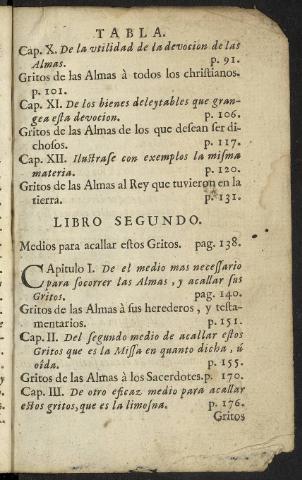 TABLA.
Cap. X. De la vtilidad de la devocion de las
Almas. p. 91.
Gritos de las Almas à todos los chriſtianos.
p. 101.
Cap. XI. De los bienes deleytables que gran-
gea eſta devocion. p. 106.
Gritos de las Almas de los que deſean ſer di-
choſos. p. 117.
Cap. XII. Iluſtraſe con exemplos la miſma
materia. p. 120.
Gritos de las Almas al Rey que tuvieron en la
tierra. p. 131.
LIBRO SEGUNDO.
Medios para acallar eſtos Gritos. pag. 138.
CApitulo I. De el medio mas neceſſario
para ſocorrer las Almas, y acallar ſus
Gritos. pag. 140.
Gritos de las Almas à ſus herederos, y teſta-
mentarios. p. 151.
Cap. II. Del ſegundo medio de acallar eſtos
Gritos que es la Miſſa en quanto dicha, ú
oída. p. 155.
Gritos de las Almas à los Sacerdotes. p. 170.
Cap. III. De otro eficaz medio para acallar
eſtos gritos, que es la limoſna. p. 176.
Gritos